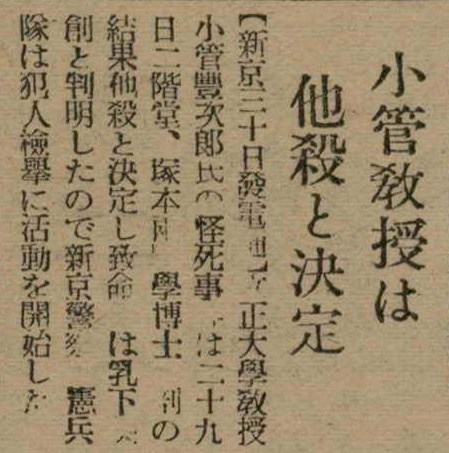 小管敎授は
他殺と決定
【新京三十日發電 正大學敎授
小管豐次郎氏の怪死事 は二十九
日二階堂、塚本 學博士 の
結果他殺と決定し致命 は乳下
創と判明したので新京警 憲兵
隊は犯人檢擧に活動を開始した